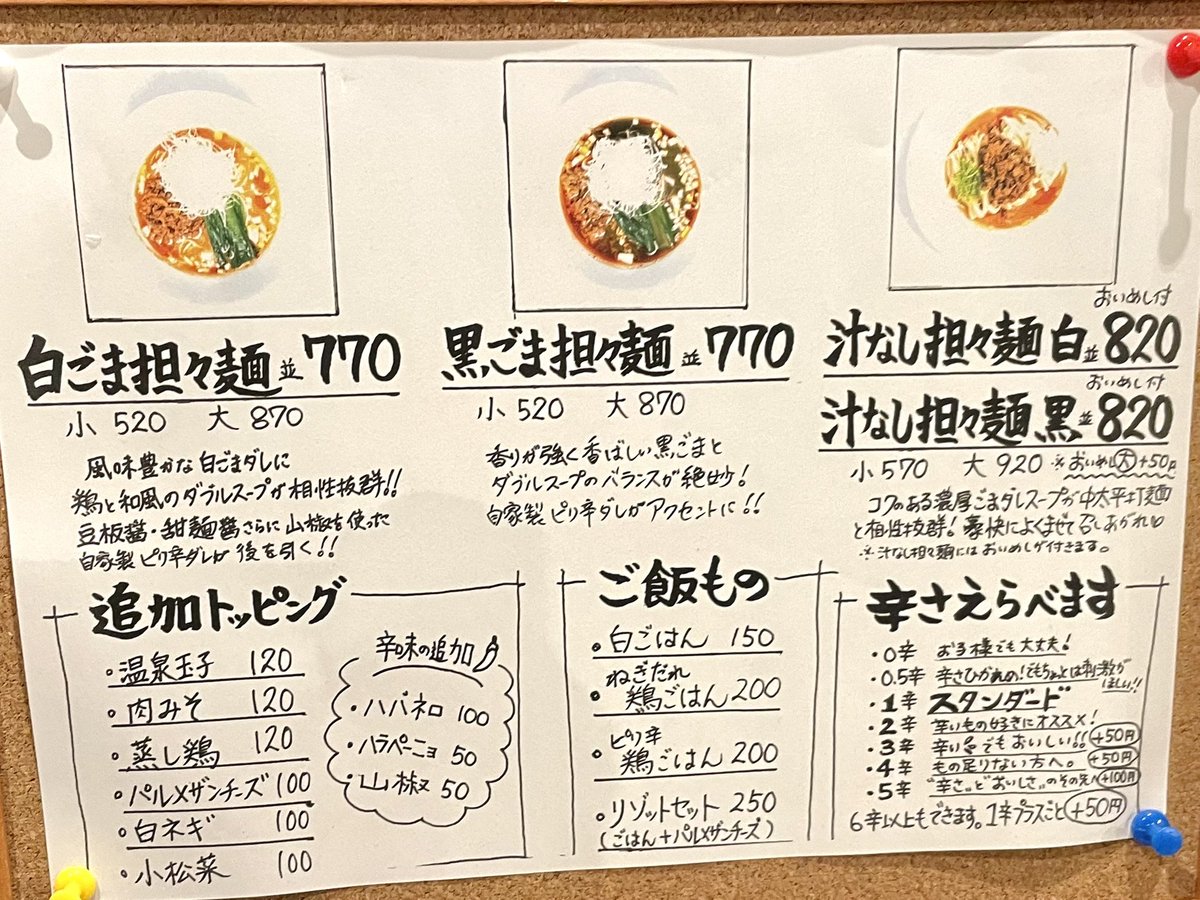 白ごま担々麺 並 770
小 520 大 870
風味豊かな白ごまダレに
鶏と和風のダブルスープが相性抜群!!
豆板醤・甜麺醤さらに山椒を使った
自家製ピリ辛ダレが後を引く!!
黒ごま担々麺 並 770
小 520 大 870
香りが強く香ばしい黒ごまと
ダブルスープのバランスが絶妙!
自家製ピリ辛ダレがアクセントに!!
おいめし付
汁なし担々麺 白 並 820
おいめし付
汁なし担々麺 黒 並 820
小 570 大 920 ※おいめし大+50円
コクのある濃厚ごまダレスープが中太平打麺
と相性抜群! 豪快によくまぜて召しあがれ♡
※汁なし担々麺にはおいめしが付きます。
追加トッピング
・温泉玉子 120
・肉みそ 120
・蒸し鶏 120
・パルメザンチーズ 100
・白ネギ 100
・小松菜 100
辛味の追加
・ハバネロ 100
・ハラペーニョ 50
・山椒 50
ご飯もの
・白ごはん 150
ねぎだれ
・鶏ごはん 200
ピリ辛
・鶏ごはん 200
・リゾットセット 250
(ごはん+パルメザンチーズ)
辛さえらべます
・0辛 お子様でも大丈夫!
・0.5辛 辛さひかえめ!でもちょっとは刺激が
ほしい!!
・1辛 スタンダード
・2辛 辛いもの好きにオススメ!
・3辛 辛い でもおいしい!! +50円
・4辛 もの足りない方へ。 +50円
・5辛 "辛さ"と"おいしさ"のその先へ +100円
6辛以上もできます。1辛プラスごと +50円